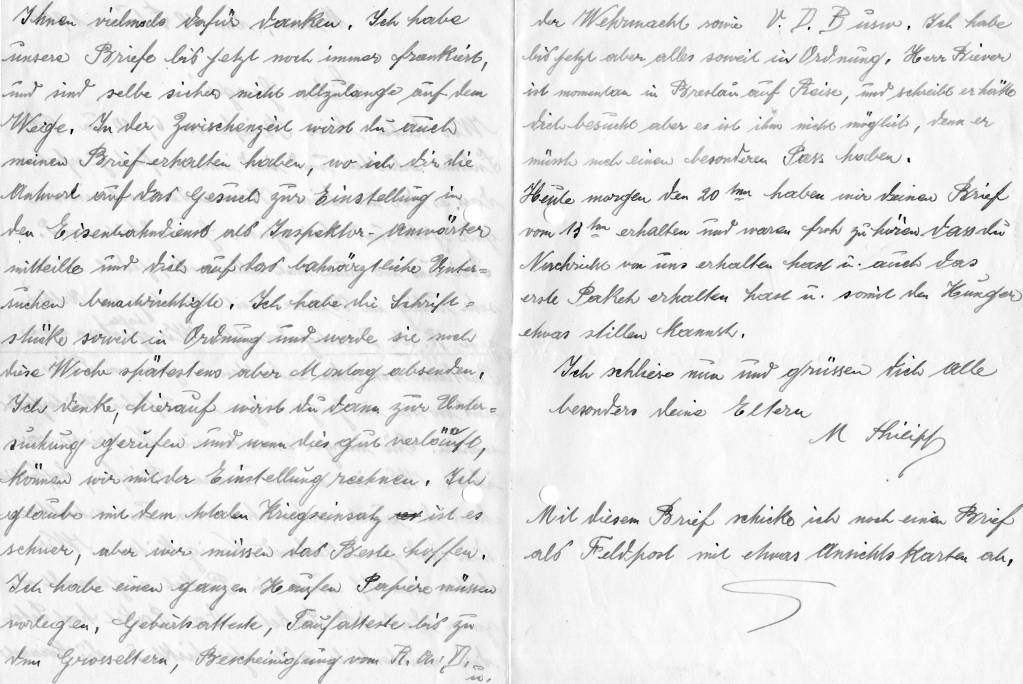 Ihnen vielmals dafür danken. Ich habe
unsere Briefe bis jetzt noch immer frankiert,
und sind selbe sicher nicht allzulange auf dem
Wege. In der Zwischenzeit wirst du auch
meinen Brief erhalten haben, wo ich dir die
Antwort auf das Gesuch zur Einstellung in
den Eisenbahndienst als Inspektor-Anwärter
mitteilte und dich auf das bahnärztliche Unter=
suchen benachrichtigte. Ich habe die Schrift=
stücke soweit in Ordnung und werde sie noch
diese Woche spätestens aber Montag absenden.
Ich denke, hierauf wirst du dann zur Unter=
suchung gerufen und wenn dies gut verläuft,
können wir mit der Einstellung rechnen. Ich
glaube mit dem totalen Kriegseinsatz ist es
schwer, aber wir müssen das Beste hoffen.
Ich habe einen ganzen Haufen Papiere müssen
vorlegen, Geburtsatteste, Taufatteste bis zu
den Grosseltern, Bescheinigung vom R.A.D. u.
der Wehrmacht sowie V.D.B usw. Ich habe
bis jetzt aber alles soweit in Ordnung. Herr
ist momentan in Breslau auf Reise, und schreibt er hätte
dich besucht aber es ist ihm nicht möglich, denn er
müsse noch einen besonderen Pass haben.
Heute morgen den 20 ten haben wir deinen Brief
vom 13 ten erhalten und waren froh zu hören dass du
Nachricht von uns erhalten hast u. auch das
erste Paket erhalten hast u. somit den Hunger
etwas stillen kannst.
Ich schliese nun und grüssen dich alle
besonders deine Eltern
M Philipp
Mit diesem Brief schicke ich noch einen Brief
als Feldpost mit etwas Ansichtskarten ab.